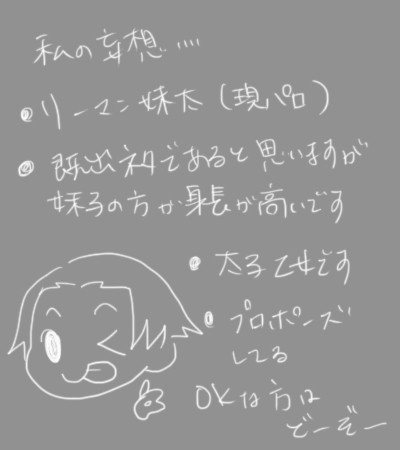 私の妄想....
リーマン妹太(現パロ)
既出ネタであると思いますが
妹子の方が身長が高いです
太子乙女です
プロポーズ
してる
OKな方は
どーぞー